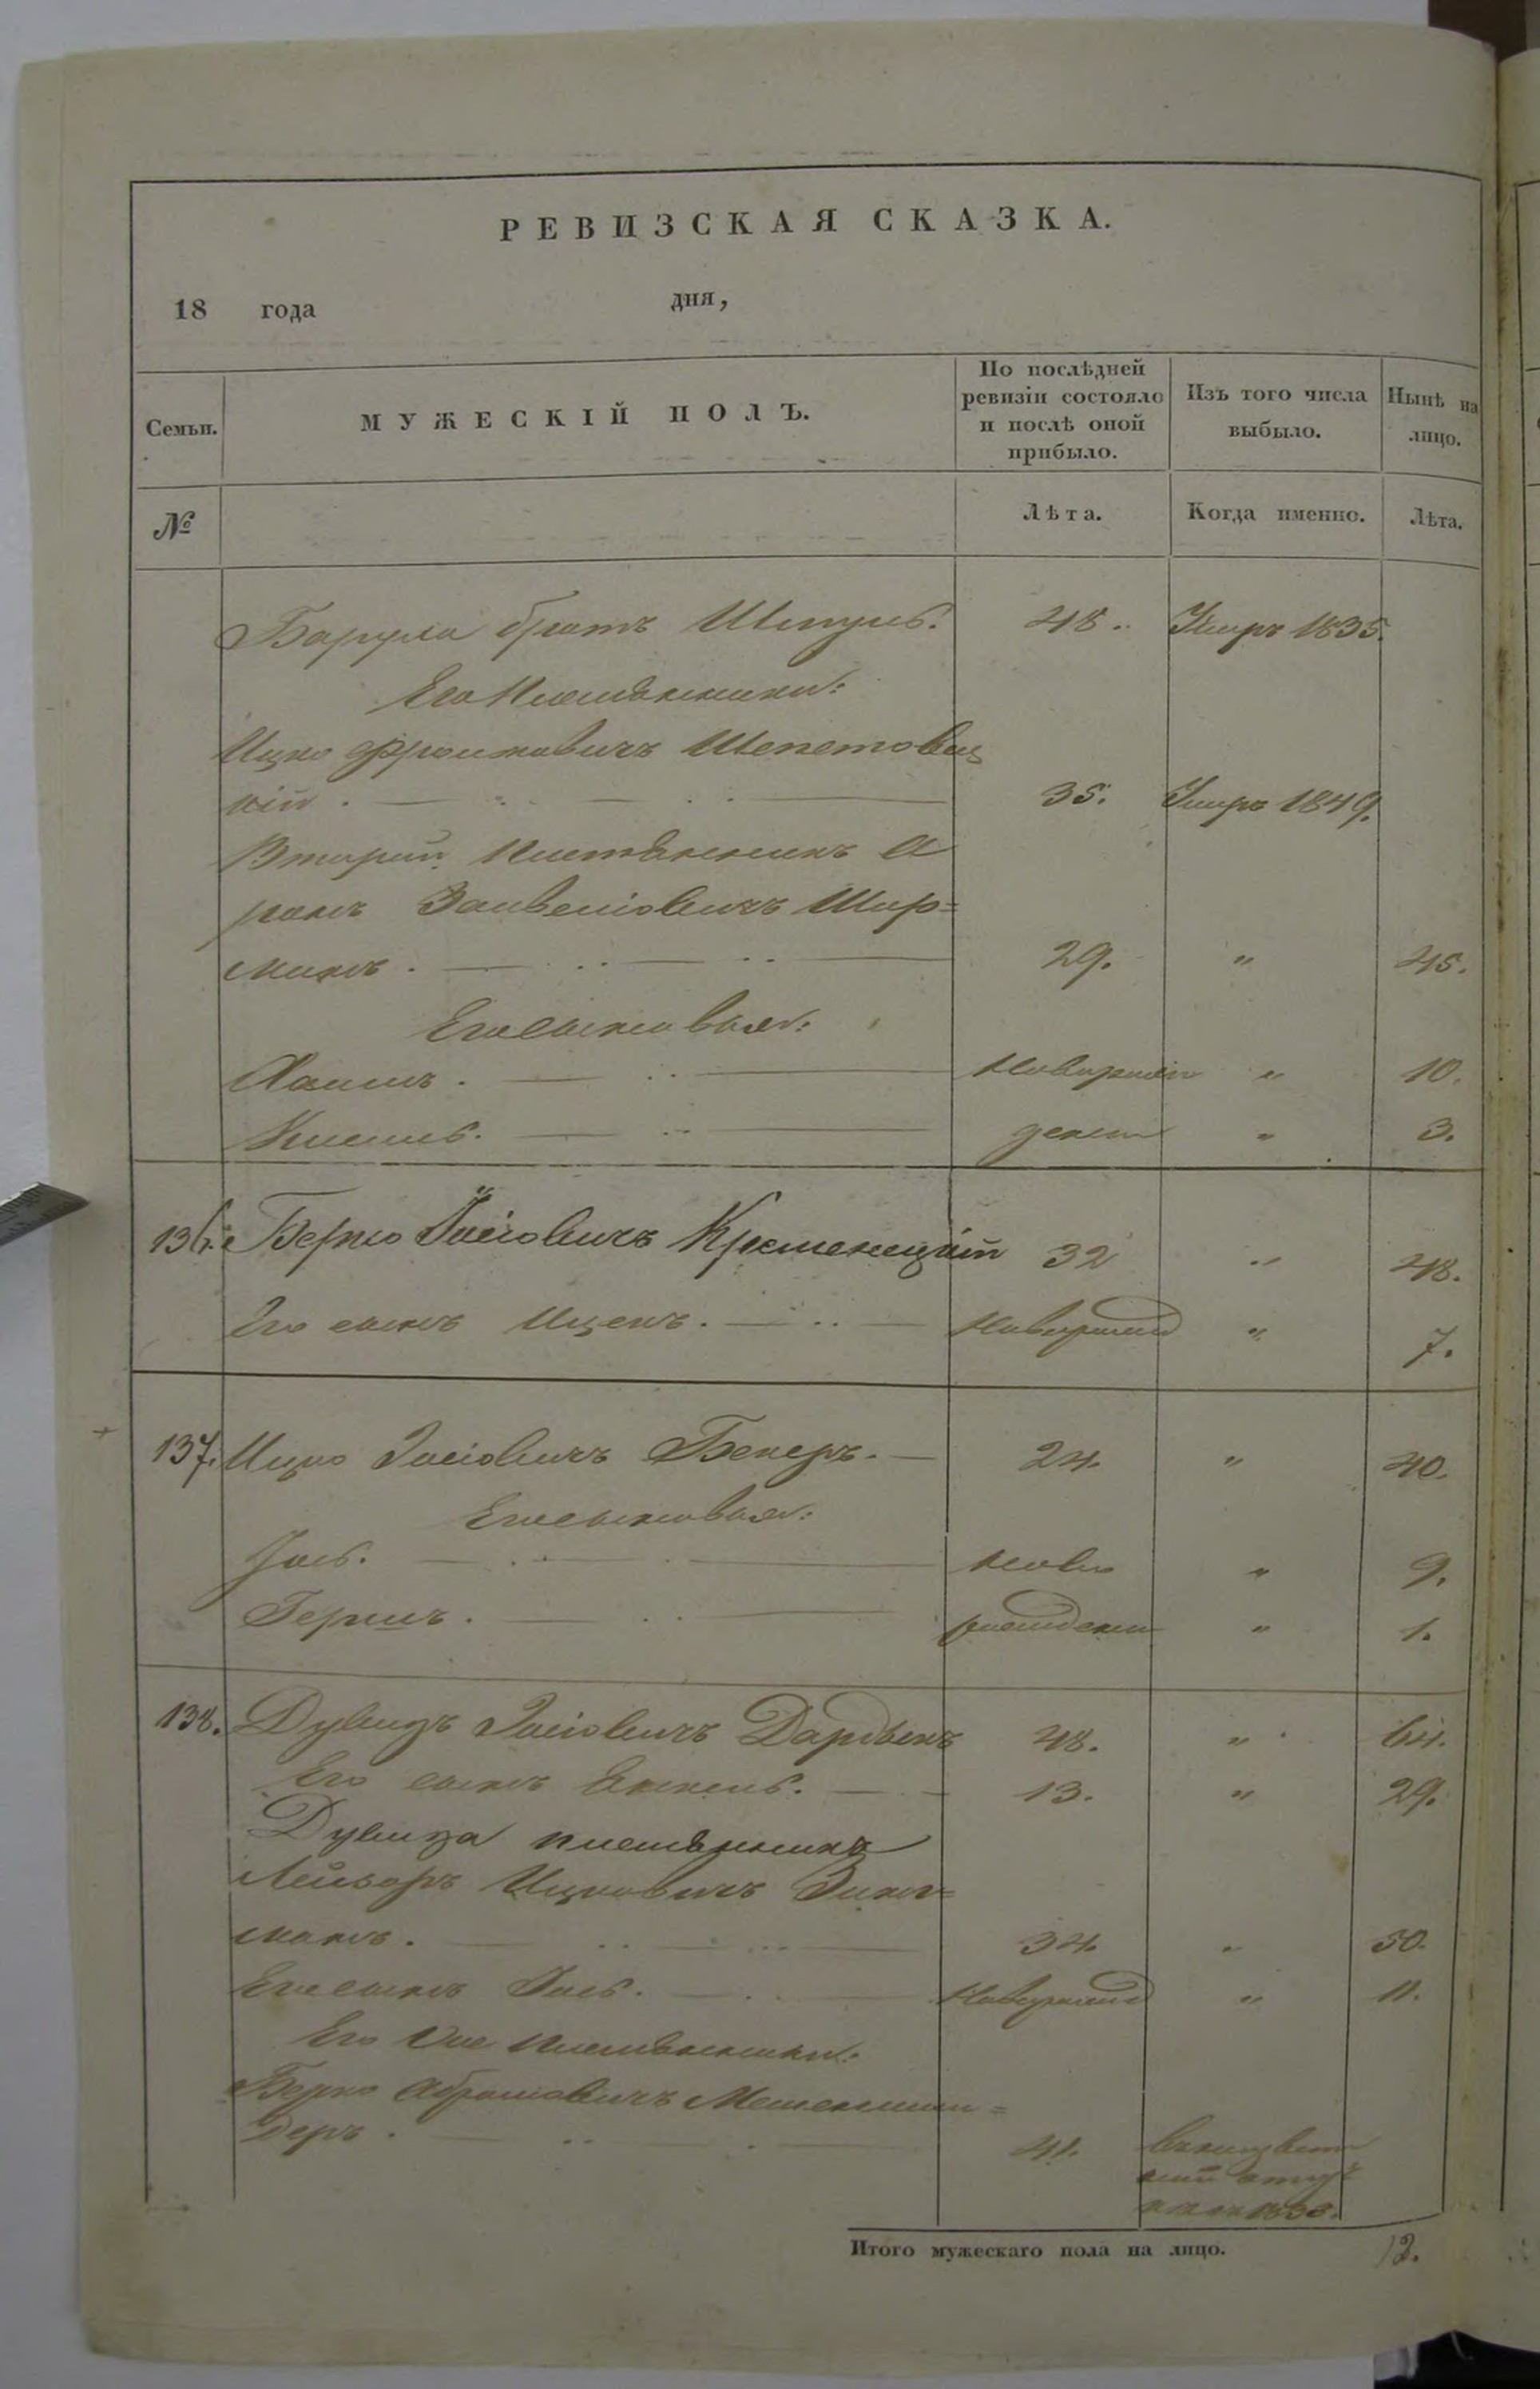 РЕВИЗСКАЯ СКАЗКА.
18 года дня,
Семьи. МУЖЕСКІЙ ПОЛЪ. По послѣдней ревизіи состояло и послѣ оной прибыло. Изъ того числа выбыло. Нынѣ на лицо.
№ Лѣта. Когда именно. Лѣта.
братъ Шмуль. 48. Умеръ 1835.
Его племянники:
Ицко Фроимовичъ Шепетовец
кій. 35. Умеръ 1849.
Вторый племянникъ А
ронъ Зейвеліовичъ
29. " 45.
Его сыновья:
Хаимъ. новорож " 10.
денны " 3.
136. Берко Іосіовичъ Кременецкій 32 " 48.
Его сынъ Ицекъ. новорожд " 7.
137. Ицко Іосіовичъ Бекеръ. 24. " 40.
Его сыновья:
Іось. ново " 9.
Гершъ. рожденн " 1.
138. Дувидъ Іосіовичъ 48. " 64.
Его сынъ 13. " 29.
Дувида племянникъ
Лейзоръ Ицковичъ
манъ. 34. " 50.
Его сынъ Іось. новорожд " 11.
Его племянники:
Берко Абрамовичъ
деръ. 41.
1838.
Итого мужескаго пола на лицо. 12.